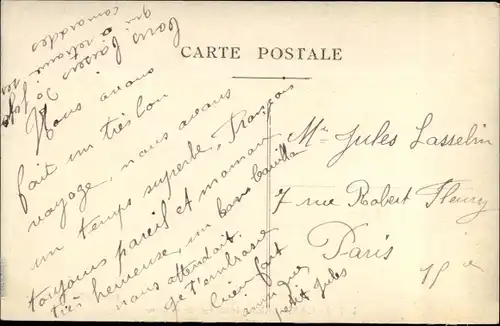 CARTE POSTALE
Nous avons
fait un très bon
voyage, nous avons
un temps superbe, François
toujours pareil et maman
très heureuse, un bon
nous attendait.
Je t'embrasse
bien fort
ainsi que
petit Jules
bons baisers
de Jojo
qui a retrouvé ses
camarades
Mr Jules Lasselin
7 rue Robert Fleury
Paris
15e